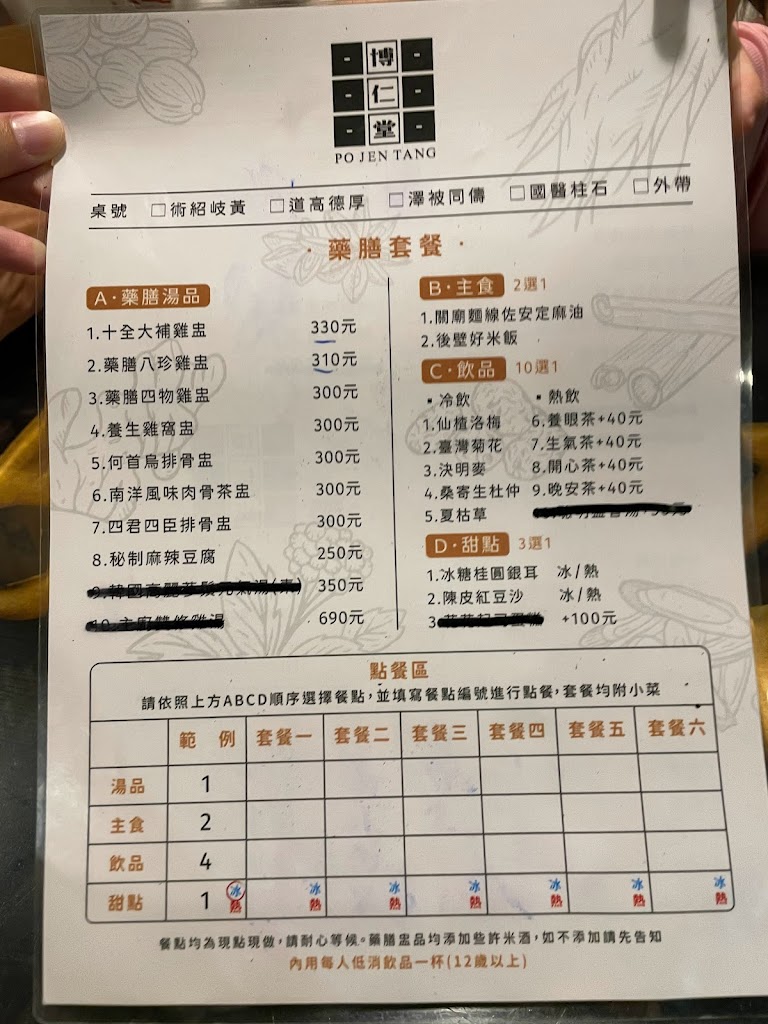 博
仁
堂
PO JEN TANG
桌號 □術紹岐黃 □道高德厚 □澤被同儔 □國醫柱石 □外帶
·藥膳套餐·
A·藥膳湯品
1.十全大補雞盅 330元
2.藥膳八珍雞盅 310元
3.藥膳四物雞盅 300元
4.養生雞窩盅 300元
5.何首烏排骨盅 300元
6.南洋風味肉骨茶盅 300元
7.四君四臣排骨盅 300元
8.秘制麻辣豆腐 250元
9.韓國高麗蔘鬚元氣湯(素) 350元
10.主廚雙修雞湯 690元
B·主食 2選1
1.關廟麵線佐安定麻油
2.後壁好米飯
C·飲品 10選1
▪冷飲 ▪熱飲
1.仙楂洛梅 6.養眼茶+40元
2.臺灣菊花 7.生氣茶+40元
3.決明麥 8.開心茶+40元
4.桑寄生杜仲 9.晚安茶+40元
5.夏枯草
D·甜點 3選1
1.冰糖桂圓銀耳 冰/熱
2.陳皮紅豆沙 冰/熱
3 +100元
點餐區
請依照上方ABCD順序選擇餐點,並填寫餐點編號進行點餐,套餐均附小菜
範 例 套餐一 套餐二 套餐三 套餐四 套餐五 套餐六
湯品 1
主食 2
飲品 4
甜點 1 冰 冰 冰 冰 冰 冰 冰
熱 熱 熱 熱 熱 熱 熱
餐點均為現點現做,請耐心等候。藥膳盅品均添加些許米酒,如不添加請先告知
內用每人低消飲品一杯(12歲以上)